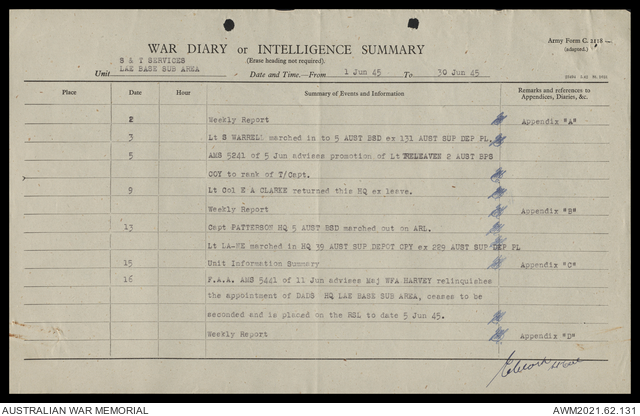 Army Form C. 2118
(adapted.)
WAR DIARY or INTELLIGENCE SUMMARY
(Erase heading not required).
S & T SERVICES
Unit LAE BASE SUB AREA
Date and Time.—From 1 Jun 45 To 30 Jun 45
Place Date Hour Summary of Events and Information Remarks and references to
Appendices, Diaries, &c.
2 Weekly Report Appendix "A"
3 Lt S WARRELL marched in to 5 AUST BSD ex 131 AUST SUP DEP PL.
5 AMS 5241 of 5 Jun advises promotion of Lt TRELEAVEN 2 AUST BPS
COY to rank of T/Capt.
9 Lt Col E A CLARKE returned this HQ ex leave.
Weekly Report Appendix "B"
13 Capt PATTERSON HQ 5 AUST BSD marched out on ARL.
Lt LA-NE marched in HQ 39 AUST SUP DEPOT CPY ex 229 AUST SUP DEP PL
15 Unit Information Summary Appendix "C"
16 F.A.A. AMS 5441 of 11 Jun advises Maj WFA HARVEY relinquishes
the appointment of DADS HQ LAE BASE SUB AREA, ceases to be
seconded and is placed on the RSL to date 5 Jun 45.
Weekly Report Appendix "D"
AUSTRALIAN WAR MEMORIAL AWM2021.62.131